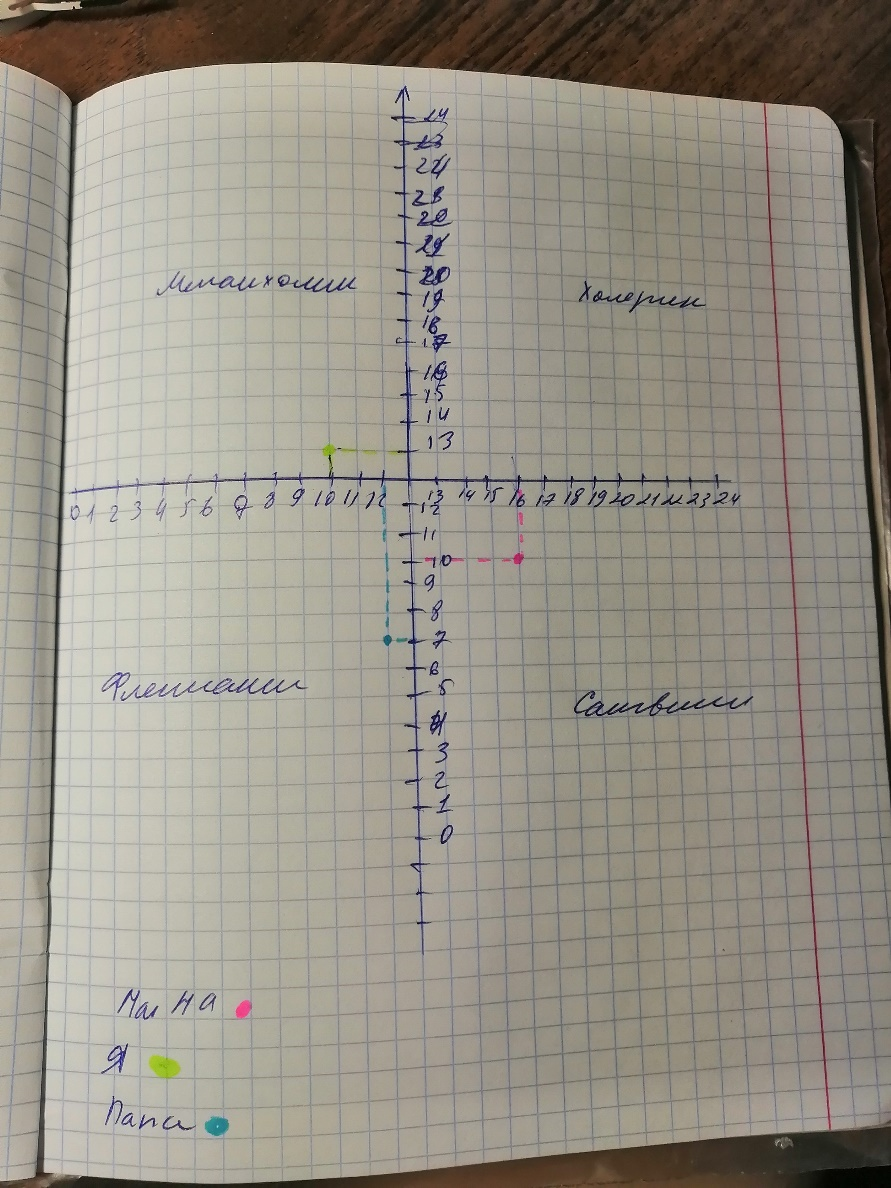 24
23
24
23
22
21
20
19
18
17
16
15
14
13
Меланхолик
Холерик
0 1 2 3 4 5 6 7 8 9 10 11 12 13 14 15 16 17 18 19 20 21 22 23 24
12
11
10
9
8
7
6
5
4
3
2
1
0
Флегматик
Сангвиник
Мама
Я
Папа